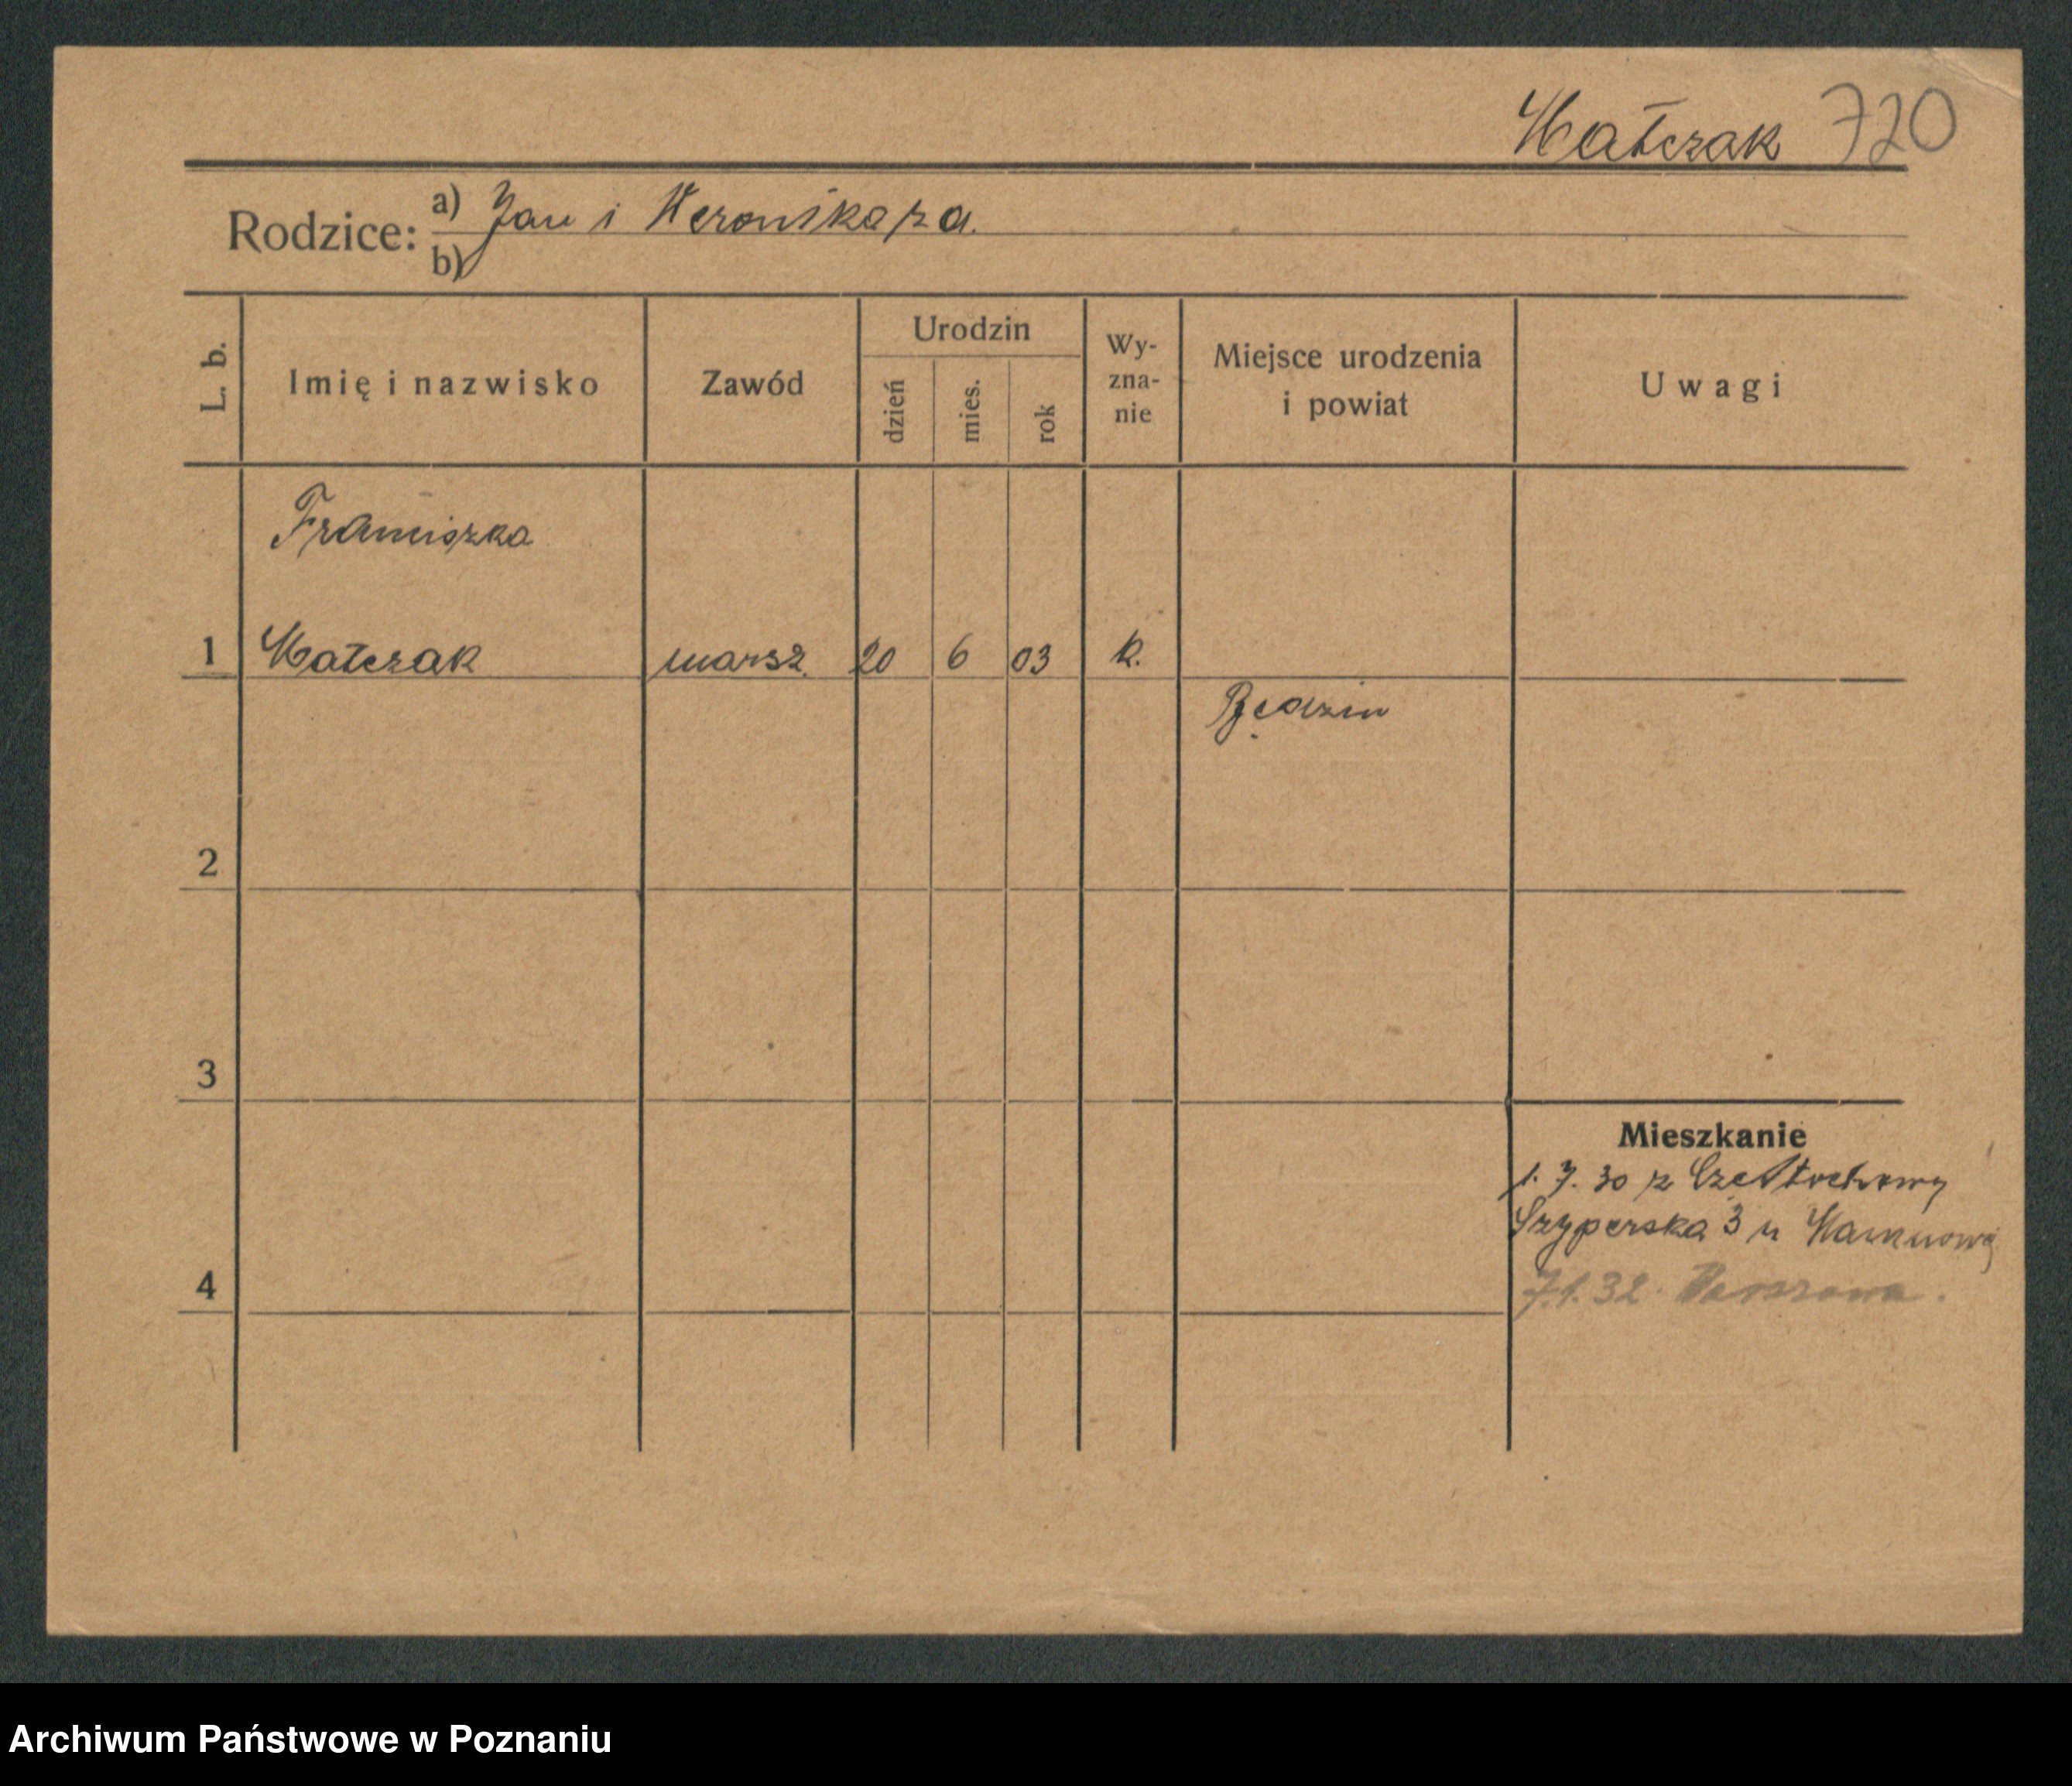 Małczak 720
Rodzice: a) Jan i Weronika z d.
b)
L. b.
Imię i nazwisko
Zawód
Urodzin
dzień
mies.
rok
Wy-
zna-
nie
Miejsce urodzenia
i powiat
Uwagi
Franciszka
1 Małczak marsz. 20 6 03 k.
Będzin
2
3
Mieszkanie
1. 7. 30 z Częstochowy
Szyperska 3 u
4
7.1.32. Warszawa.
Archiwum Państwowe w Poznaniu